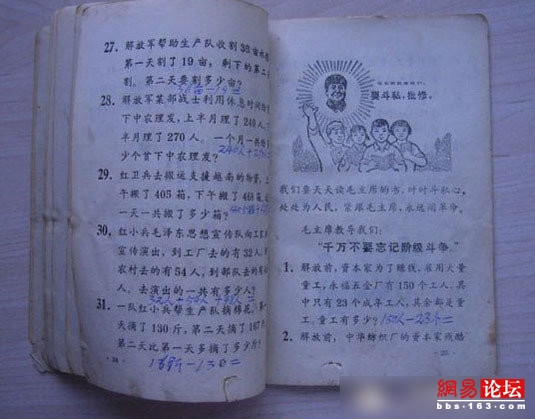 27. 解放军帮助生产队收割38亩水
第一天割了19亩，剩下的第二天
割。第二天要割多少亩？
28. 解放军某部战士利用休息时间给
下中农理发，上半月理了240人，
半月理了270人。一个月一共给
少个贫下中农理发？
29. 红卫兵去搬运支援越南的物资，
午搬了405箱，下午搬了
一天一共搬了多少箱？
30. 红小兵毛泽东思想宣传队向工
宣传演出，到工厂去的有32人，
农村去的有54人，到部队去的有
人。去演出的一共有多少人？
31. 一队红小兵帮生产队摘棉花。第
天摘了130斤，第二天摘了167斤
第二天比第一天多摘了多少斤？
要斗私，批修。
我们要天天读毛主席的书，时时斗私心，
处处为人民，紧跟毛主席，永远闹革命。
毛主席教导我们：
“千万不要忘记阶级斗争。”
1. 解放前，资本家为了赚钱，雇用大量
童工，永福五金厂有150个工人，其
中只有23个成年工人，其余都是童
工。童工有多少？150人-23个=
2. 解放前，中华纺织厂的资本家残酷
网易论坛
bbs·163.com